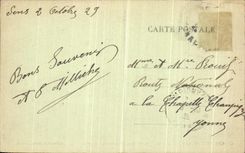 Sens 2 Octobre 29
CARTE POSTALE
Bons Souvenirs
Mme et Mr
Route Nationale
a la Chapelle Champigny
Yonne